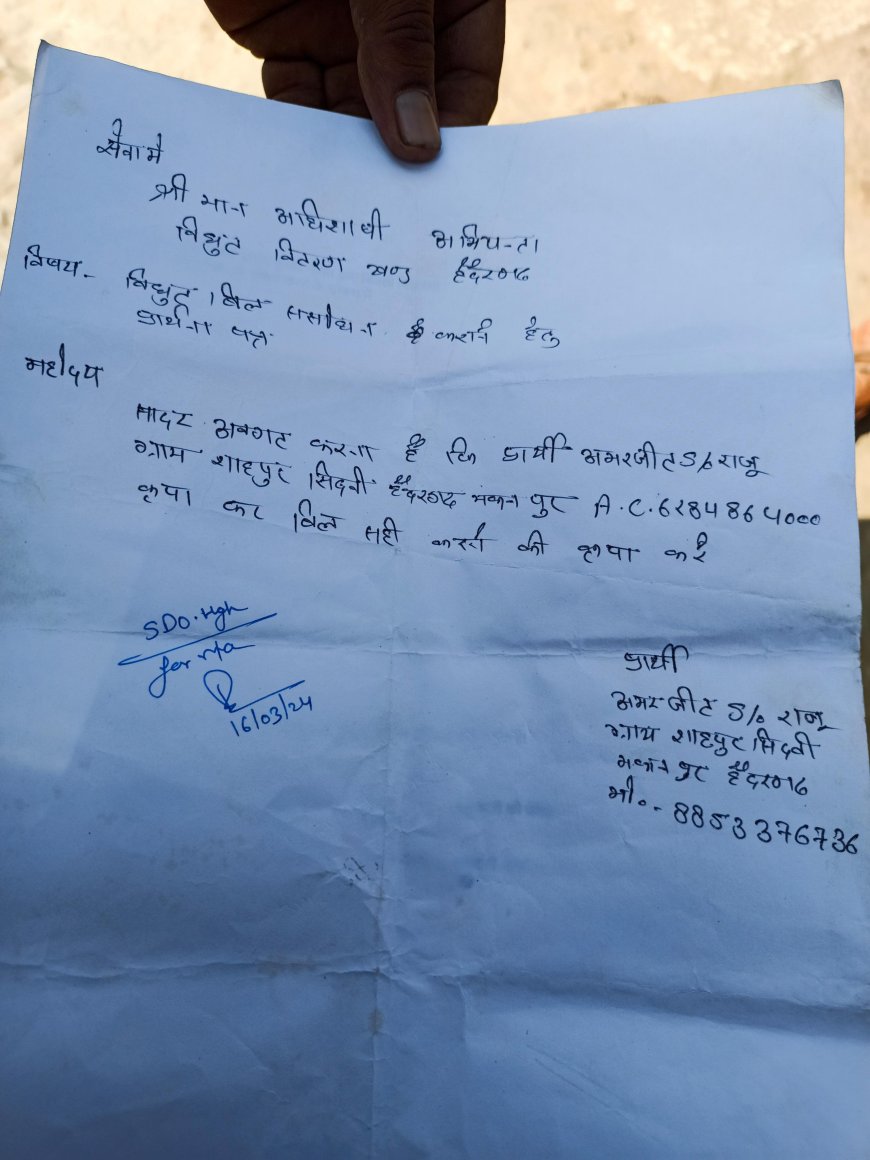 सेवा मे
श्री मान अधिशाषी अभियन्ता
विधुत वितरण खण्ड हैदरगढ
विषय- विधुत बिल संसोधन कराने हेतु
प्रार्थना पत्र
महोदय
सादर अवगत करना है कि प्रार्थी अमरजीत S/o राजू
ग्राम शाहपुर सिदवी हैदरगढ मकन पुर A.C. 6284864000
कृपा कर विल सही करने की कृपा करे
SDO. Hgh
for n/a
16/03/24
प्रार्थी
अमरजीत S/o राजू
ग्राम शाहपुर सिदवी
मकन पुर हैदरगढ
मो०- 8853376736